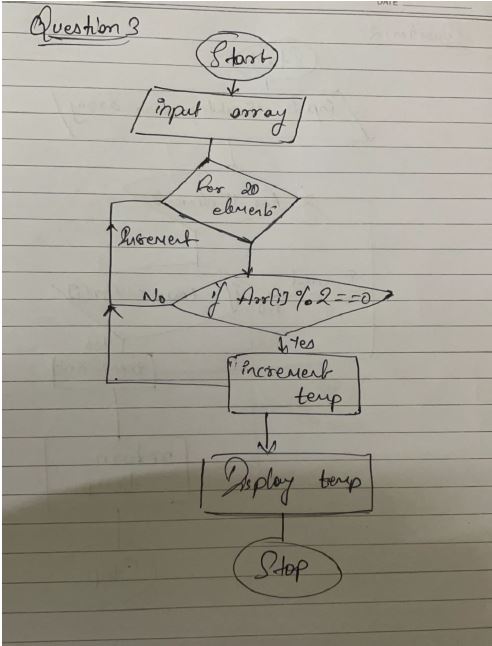 DATE
Question 3
Start
input array
For 20
elements
Increment
No
if Arr[i] % 2 == 0
Yes
increment
temp
Display temp
Stop